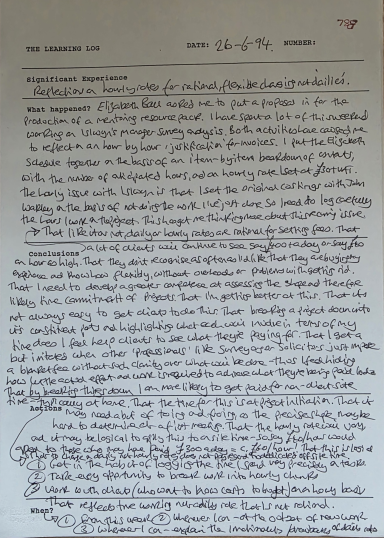 798
THE LEARNING LOG DATE: 26-6-94. NUMBER:
Significant Experience
Reflection on hourly rates for rational, flexible charging not dailies.
What happened? Elizabeth Ball asked me to put a proposal in for the
production of a mentoring resource pack. I have spent a lot of this weekend
working on manager survey analysis. Both activities have caused me
to reflect on an hour by hour 'justification' for invoices. I put the Elizabeth
schedule together on the basis of an item-by-item breakdown of contents,
with the number of anticipated hours, and an hourly rate set at
The hourly issue with is that I set the original costings with John
on the basis of not doing the work I've just done so I need to log carefully
the hours I work on the project. This has got me thinking more about this money issue.
→ That like it or not, daily or hourly rates are rational for setting fees. That
Conclusions a lot of clients will continue to see say £400 a day or say £50
an hour as high. That they don't recognise as often as I'd like that they are buying
expertise and know how flexibly, without overheads or problems with getting rid.
That I need to develop a greater competence at assessing the shape and therefore
likely time commitment of projects. That I'm getting better at this. That it's
not always easy to get clients to do this. That breaking a project down into
its constituent parts and highlighting what each will involve in terms of my
time does I feel help clients to see what they're paying for. That I get a
bit irritated when other 'professionals' like Surveyors or Solicitors just impose
a blanket fee without such clarity over what will be done - thus often hiding
how little actual effort and work is required to achieve what they're being paid for.
That by breaking things down I am more likely to get paid for non-client-site
time - typically at home. That the time for this is at project initiation. That it
Actions may need a bit of to-ing and fro-ing as the precise shape may be
hard to determine at first meetings. That the hourly rate will vary
and it may be logical to apply this to on site time - so say £60/hour would
(1) Get in the habit of logging the time I spend very precisely on tasks
(2) Take every opportunity to break work into hourly chunks
(3) Work with clients (who want to know costs to budget) on an hourly basis
That reflects true worth, not a daily rate that is not rational.
When?
(1) From this week (2) Wherever I can - at the outset of new work
(3) Wherever I can - explain the drawbacks of daily rates